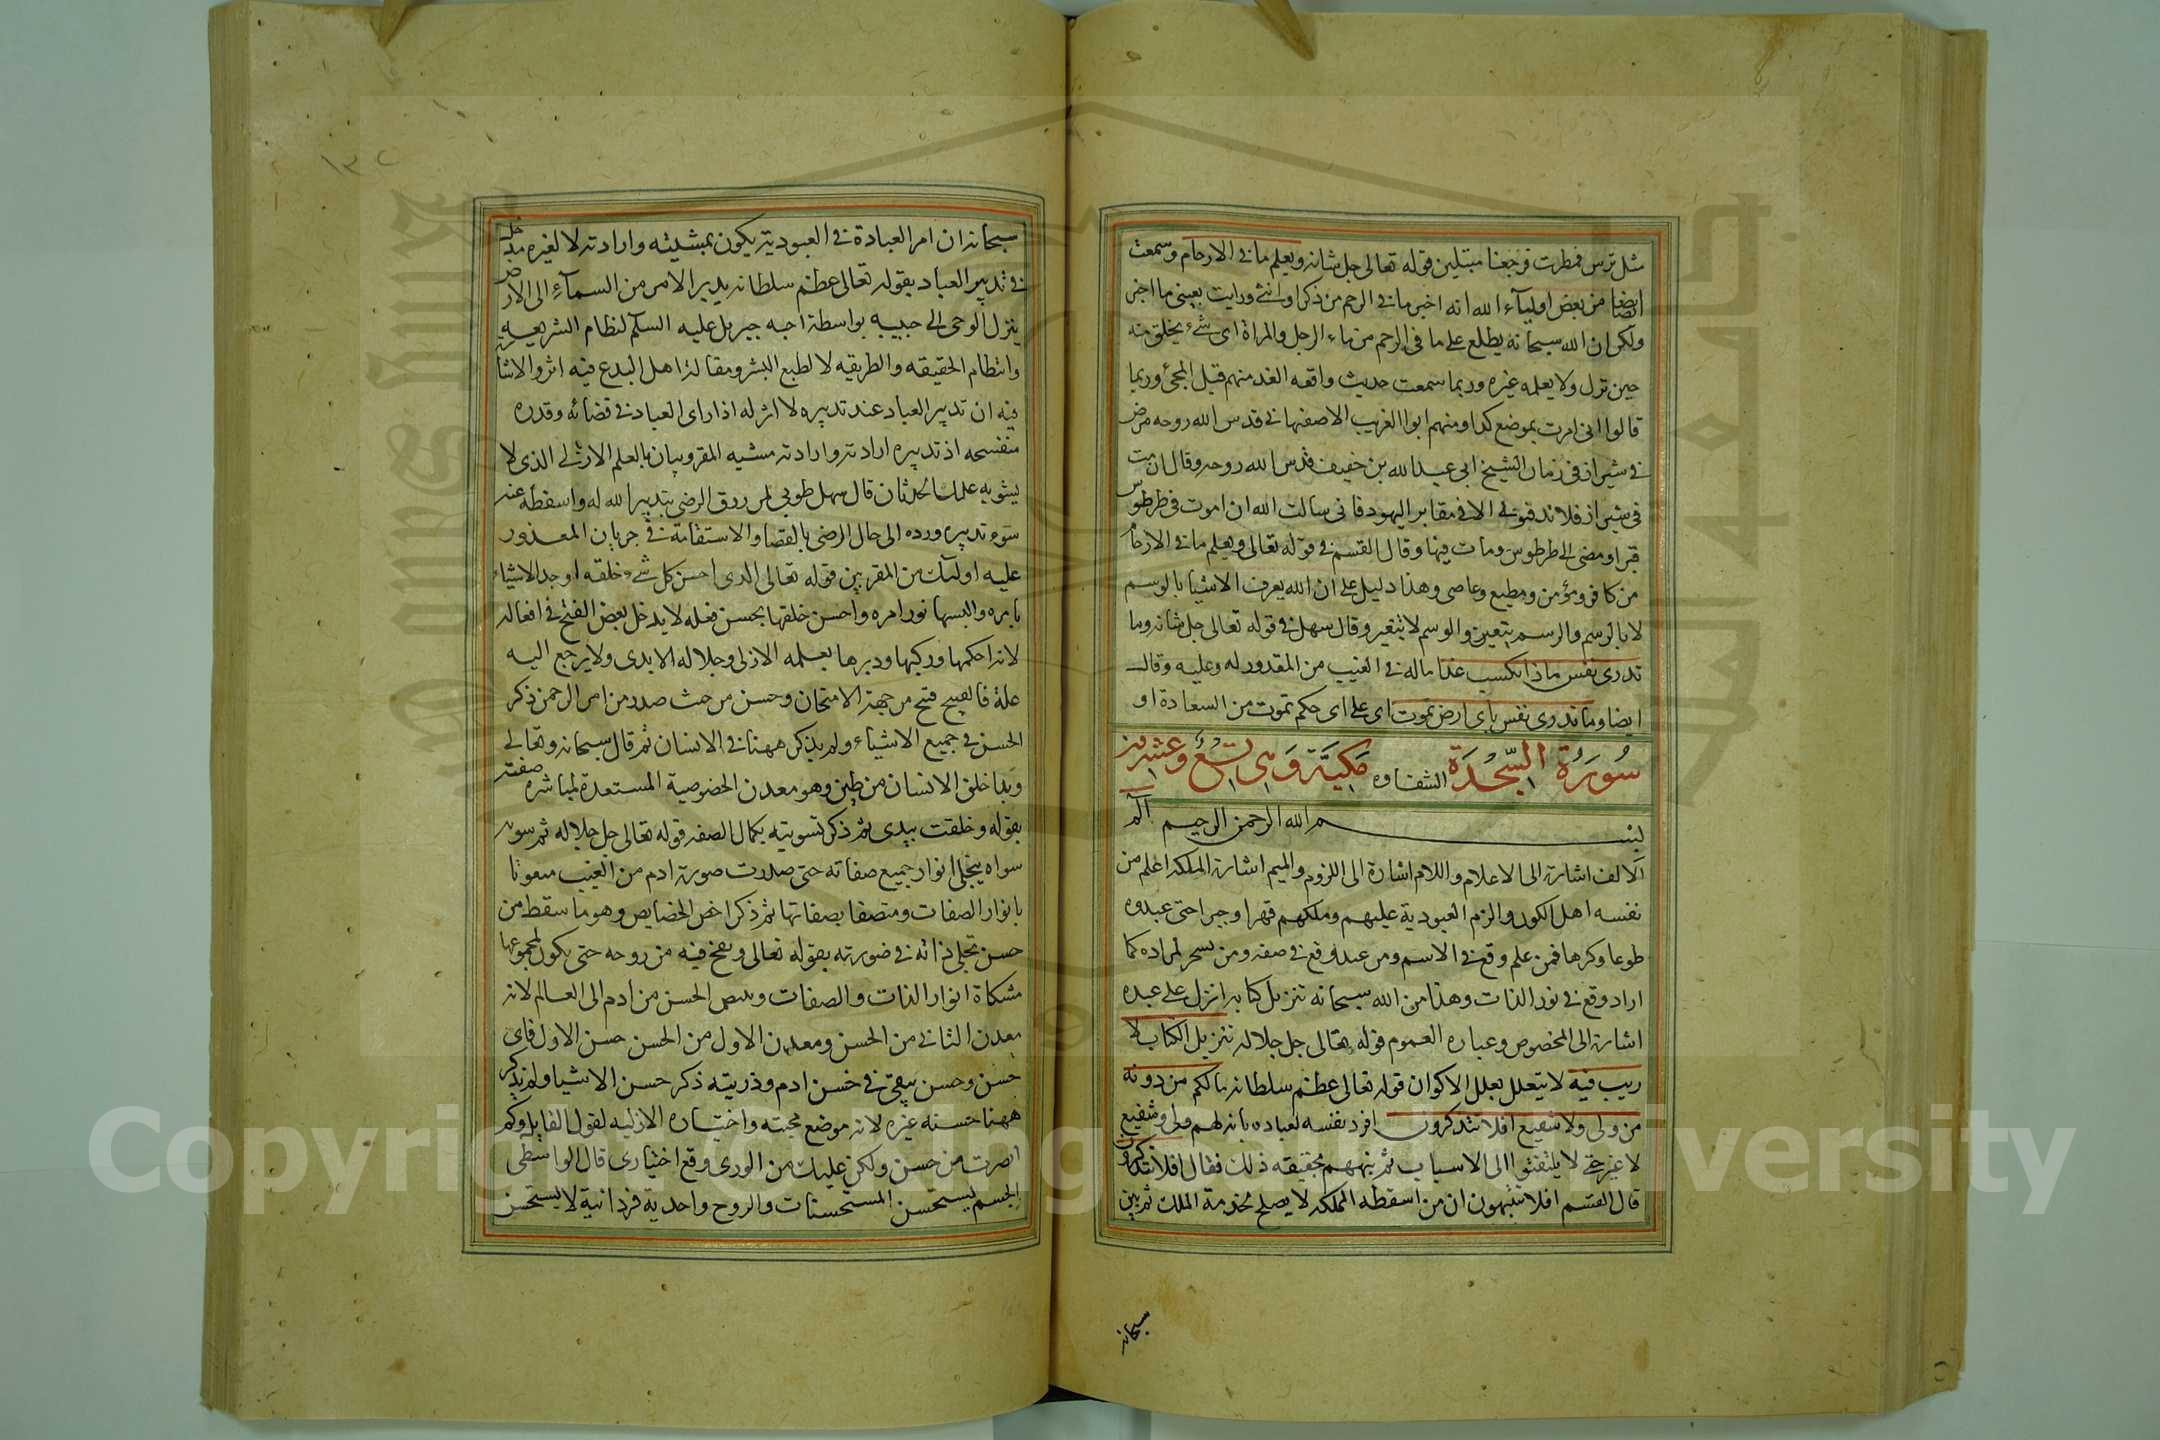 مثل ترس فمطرت فرجعنا مبتلين قوله تعالى جل شانه ويعلم ما في الارحام وسمعت
ايضا من بعض اوليآء الله انه اخبر ما في الرحم من ذكر او انثى ورايت بعيني ما اخبر
ولكن ان الله سبحانه يطلع على ما في الرحم من ماء الرجل والمراة اى شىء يخلق منه
حين نزل ولا يعلمه غيره وربما سمعت حديث واقعه الغد منهم قبل المجئ وربما
قالوا انى امرت بموضع كذا ومنهم ابوا الغريب الاصفهاني قدس الله روحه مرض
في شيراز في زمان الشيخ ابي عبد الله بن خفيف قدس الله روحه وقال ان مت
في شيراز فلا تدفنوني الا في مقابر اليهود فاني سالت الله ان اموت في طرطوس
فبرا ومضى الى طرطوس ومات فيها وقال القسم في قوله تعالى ويعلم ما في الارحام
من كافر ومؤمن ومطيع وعاصى وهذا دليل على ان الله يعرف الاشيا بالوسم
لا بالرسم والرسم يتعين والوسم لا يتغير وقال سهل في قوله تعالى جل شانه وما
تدرى نفس ماذا تكسب غدا ماله في الغيب من المقدور له وعليه وقال
ايضا وما تدرى نفس باى ارض تموت اى على اى حكم تموت من السعادة او
سُورَةُ السَّجْدَة الشقاوه مكيَّة وَهِي تسْعُ وعشرين
بسم الله الرحمن الرحيم الٓم
الالف اشارة الى الاعلام واللام اشارة الى اللزوم والميم اشارة الملكه اعلم من
نفسه اهل الكون والزم العبودية عليهم وملكهم قهرا وجبرا حتى عبدوه
طوعا وكرها فمن علم وقع في الاسم ومن عبد وقع في صفه ومن يسخر لمراده كما
اراد وقع في نور الذات وهذا من الله سبحانه تنزيل كتابه انزل على عبده
اشارة الى الخصوص وعباره العموم قوله تعالى جل جلاله تنزيل الكتاب لا
ريب فيه لا يتعلل بعلل الاكوان قوله تعالى عظم سلطانه مالكم من دونه
من ولى ولا شفيع افلا تتذكرون افرد نفسه لعباده بانه لهم ولى وشفيع
لا غير حتى لا يلتفتوا الى الاسباب ثم نبههم بحقيقه ذلك فقال افلا تتذكرون
قال القسم افلا تنتبهون ان من اسقطه المملكه لا يصلح لخدمة الملك ثم بين
سبحانه
١٣٢
سبحانه ان امر العبادة في العبودية يكون بمشيئه وارادته لا لغيره مدخل
في تدبير العباد بقوله تعالى عظم سلطانه يدبر الامر من السمآء الى الارض
ينزل الوحى الى حبيبه بواسطة اجبه جبريل عليه السلم لنظام الشريعه
وانتظام الحقيقه والطريقه لا لطبع البشر ومقالة اهل البدع فيه اثر والاشارة
فيه ان تدبير العباد عند تدبيره لا اثر له اذا راى العباد في قضائه وقدره
منفسحه اذ تدبيره ارادته وارادته مشيه المقروبان بالعلم الازلى الذى لا
يشوبه علمك الحدثان قال سهل طوبي لمن رزق الرضى بتدبير الله له واسقط عنه
سوء تدبيره ورده الى حال الرضى بالقضا والاستقامة في جريان المقدور
عليه اولئك من المقربين قوله تعالى الذى احسن كل شىء خلقه اوجد الاشياء
بامره والبسها نور امره واحسن خلقها بحسن فعله لا يدخل بعض القبح في افعاله
لانه احكمها وركبها ودبرها بعلمه الازلى وجلاله الابدى ولا يرجع اليه
علة فالقبيح قبح من جهة الامتحان وحسن من حيث صدر من امر الرحمن ذكر
الحسن في جميع الاشياء ولم يذكر ههنا في الانسان ثم قال سبحانه وتعالى
وبدا خلق الانسان من طين وهو معدن الخصوصية المستعدة لمباشره صفته
بقوله وخلقت بيدى ثم ذكر تسويته بكمال الصفه قوله تعالى جل جلاله ثم سويه
سواه بتجلى انوار جميع صفاته حتى صدرت صورة ادم من الغيب منعوتا
بانوار الصفات ومتصفا بصفاتها ثم ذكر اخص الخصايص وهو ما سقط من
حسن تجلى ذاته في صورته بقوله تعالى ونفخ فيه من روحه حتى يكون لمجموعها
مشكاة انوار الذات والصفات الحسن من ادم الى العالم لانه
معدن الثاني من الحسن ومعدن الاول من الحسن حسن الاول فاى
حسن وحسن يبقى في حسن ادم وذريته ذكر حسن الاشيا ولم يذكر
ههنا حسنه غيره لانه موضع محبته واختياره الازليه لقول القايل وكم
ابصرت من حسن ولكن عليك من الورى وقع اختيارى قال الواسطى
الجسم يستحسن المستحسنات والروح واحدية فردانية لا يستحسن
Copyright © King Saud University